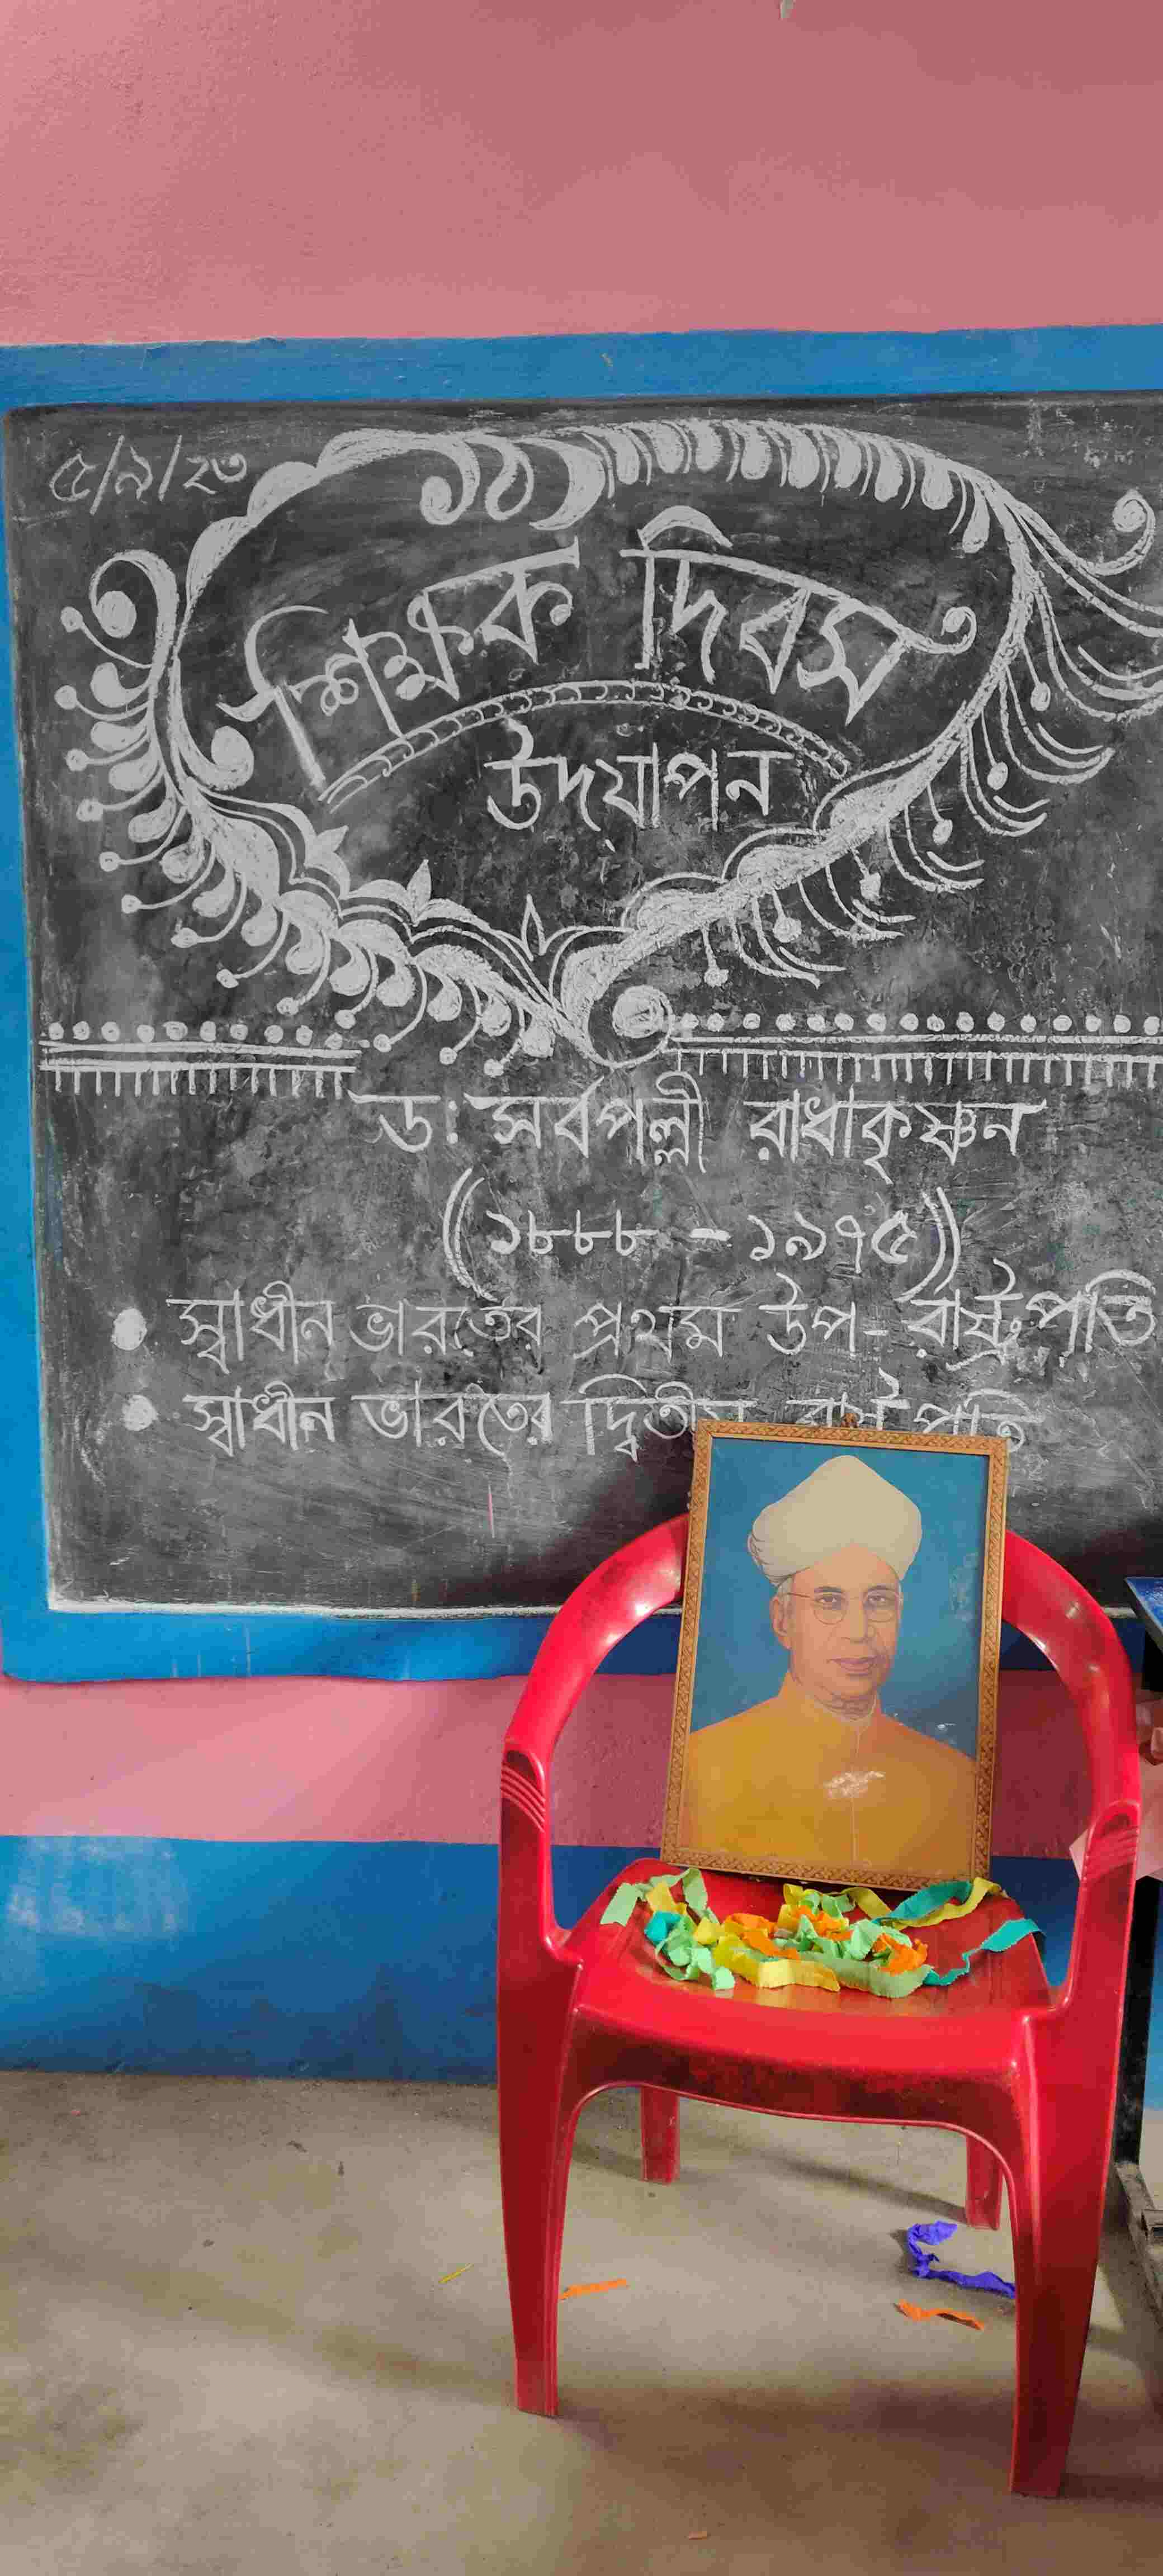 ৫/৯/২৩
শিক্ষক দিবস
উদযাপন
ড: সর্বপল্লী রাধাকৃষ্ণন
(১৮৮৮ - ১৯৭৫)
স্বাধীন ভারতের প্রথম উপ-রাষ্ট্রপতি
স্বাধীন ভারতের দ্বিতীয় রাষ্ট্রপতি